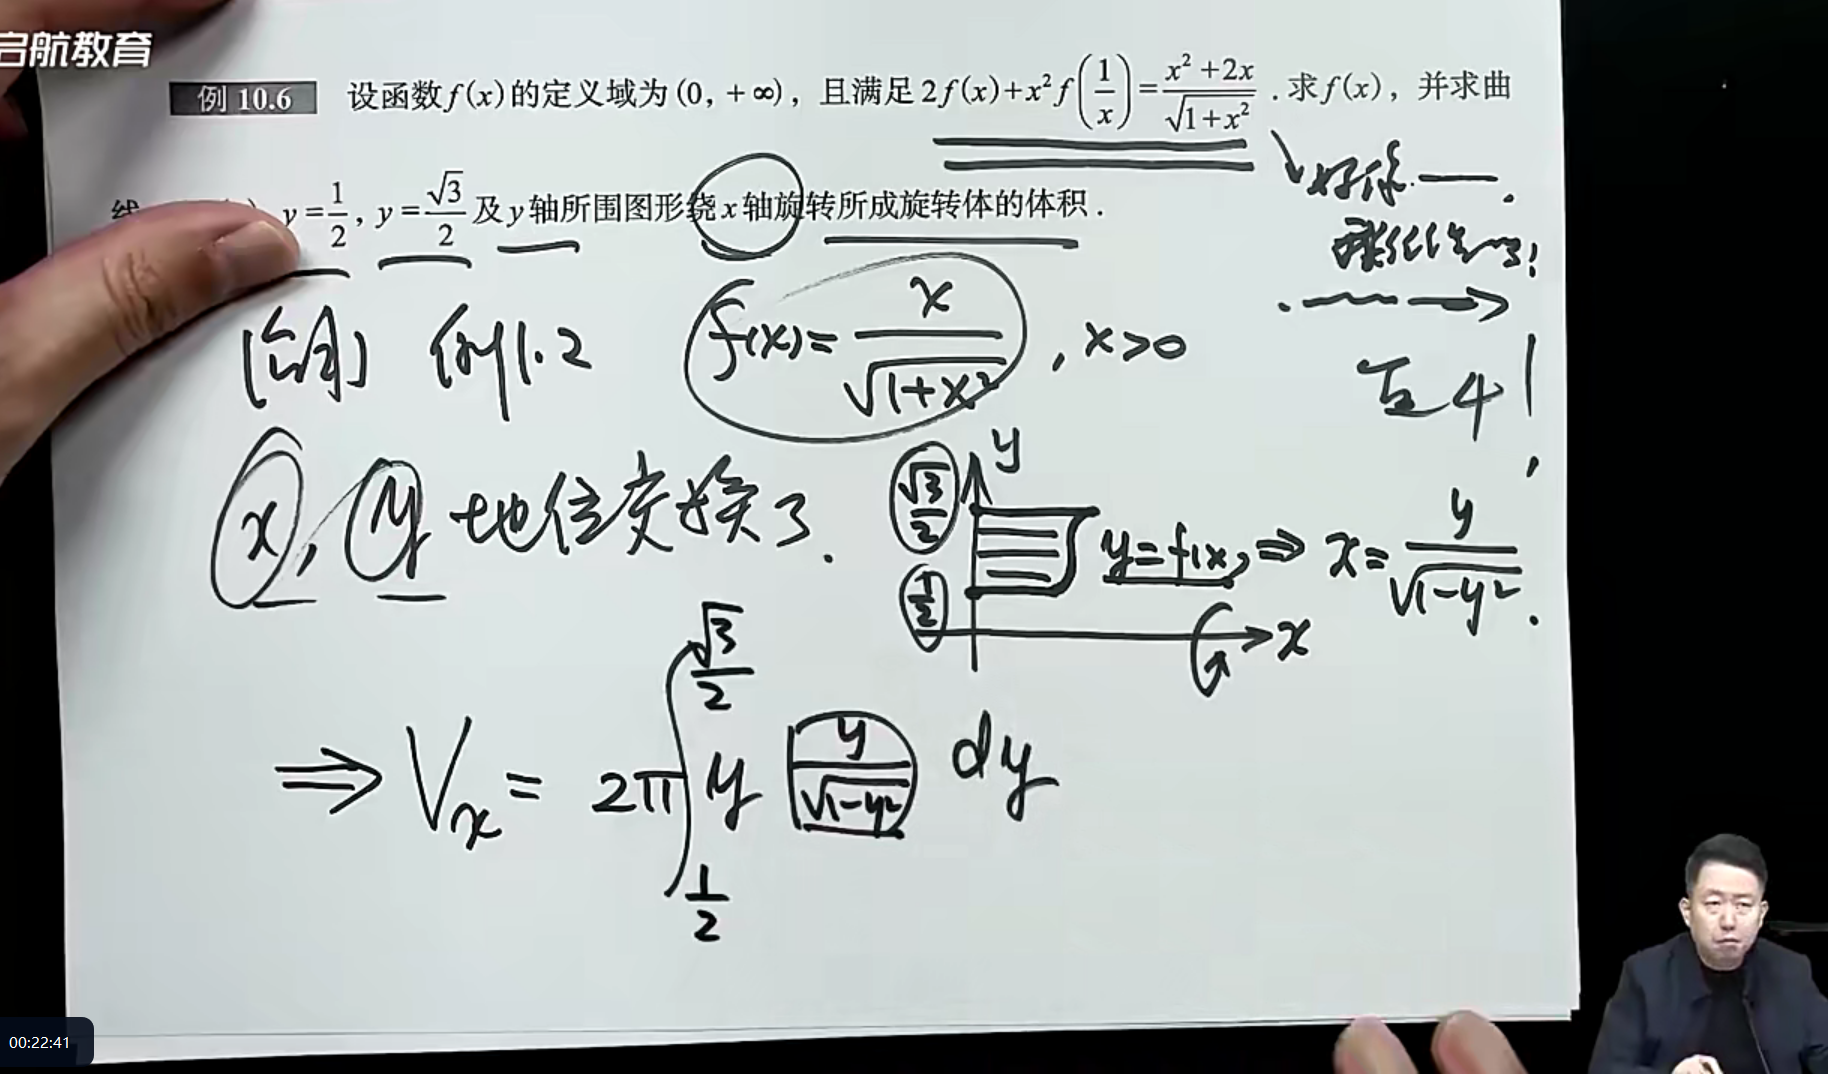 启航教育
例 10.6 设函数f(x)的定义域为(0, +∞), 且满足 2f(x)+x²f(1/x)=(x²+2x)/√(1+x²).求f(x), 并求曲
线 y=1/2, y=√3/2 及 y 轴所围图形绕 x 轴旋转所成旋转体的体积.
例11.2 f(x)=x/√(1+x²), x>0
x, y 地位交换了.
y
√3/2
1/2
y=f(x) ⇒ x=y/√(1-y²).
x
⇒ Vx = 2π∫_{1/2}^{√3/2} y y/√(1-y²) dy
00:22:41